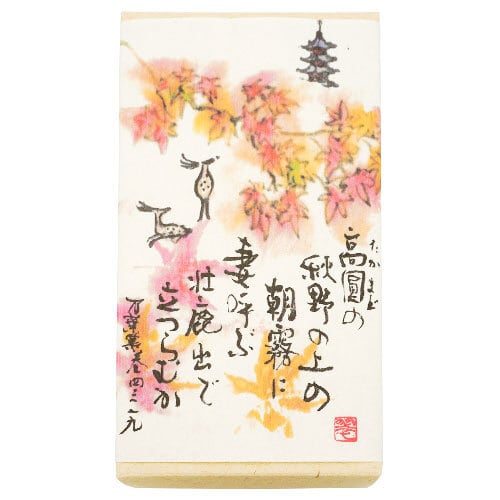 たかまど
高圓の
秋野の上の
朝霧に
妻呼ぶ
壮鹿出で
立つらむか
万葉集巻四三一九